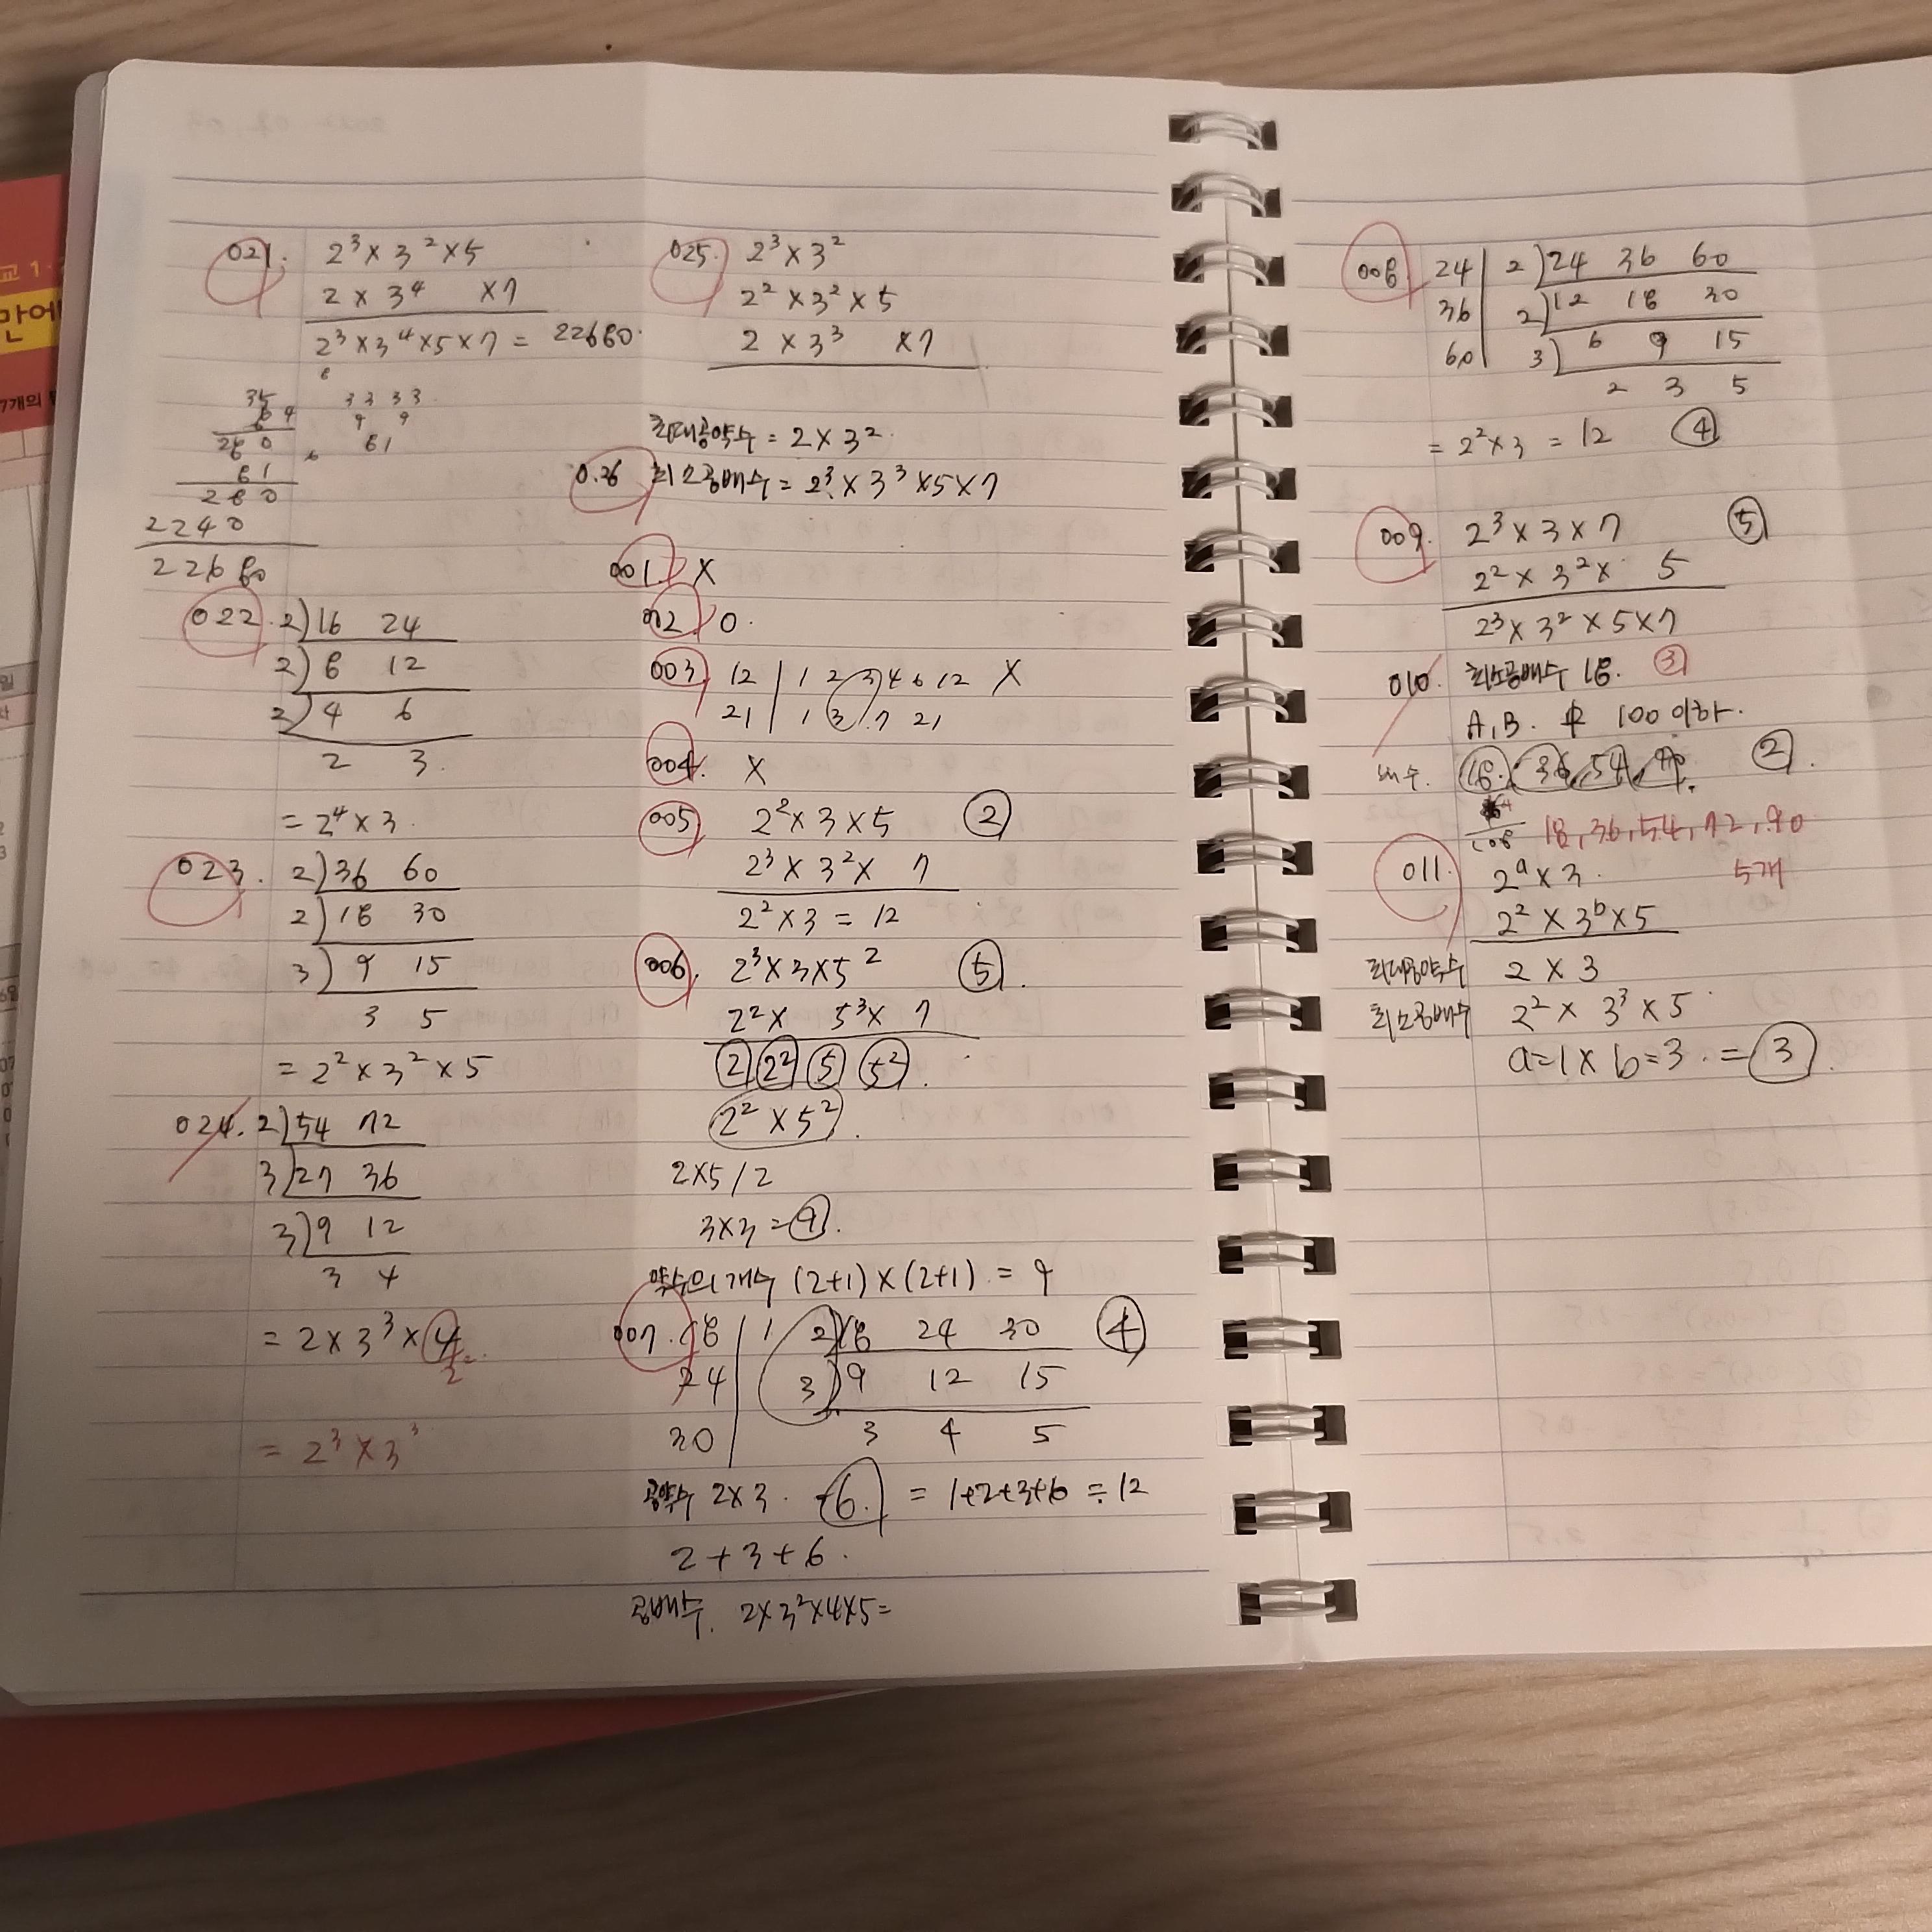 021. 2³ × 3² × 5
2 × 3⁴ × 7
2³ × 3⁴ × 5 × 7 = 22680
8
35
3 3 3 3
9 9
280
81
81
280
2240
22680
022. 2) 16 24
2) 8 12
2) 4 6
2 3
= 2⁴ × 3
023. 2) 36 60
2) 18 30
3) 9 15
3 5
= 2² × 3² × 5
024. 2) 54 72
3) 27 36
3) 9 12
3 4
= 2 × 3³ × 4
2²
= 2³ × 3³
025. 2³ × 3²
2² × 3² × 5
2 × 3³ × 7
최대공약수 = 2 × 3²
026 최소공배수 = 2³ × 3³ × 5 × 7
001. X
002. O.
003. 12 | 1 2 3 4 6 12 X
21 | 1 3 7 21
004. X
005. 2² × 3 × 5 ②
2³ × 3² × 7
2² × 3 = 12
006. 2³ × 3 × 5² ⑤
2² × 5³ × 7
2 2² 5 5²
2² × 5²
2×5/2
3×3 = 9.
약수의 개수 (2+1) × (2+1) = 9
007. 18 | 1 2) 18 24 30 ④
24 | 3) 9 12 15
30 | 3 4 5
공약수 2×3 6. = 1+2+3+6 = 12
2 + 3 + 6.
공배수. 2×3²×4×5=
008. 24 | 2) 24 36 60
36 | 2) 12 18 30
60 | 3) 6 9 15
2 3 5
= 2² × 3 = 12 ④
009. 2³ × 3 × 7 ⑤
2² × 3² × 5
2³ × 3² × 5 × 7
010. 최소공배수 18. ③
A, B. 100 이하.
배수. 18. 36, 54, ②.
108 18, 36, 54, 72, 90
5개
011. 2ᵃ × 3.
2² × 3ᵇ × 5
최대공약수 2 × 3
최소공배수 2² × 3³ × 5
a=1 × b=3. = ③